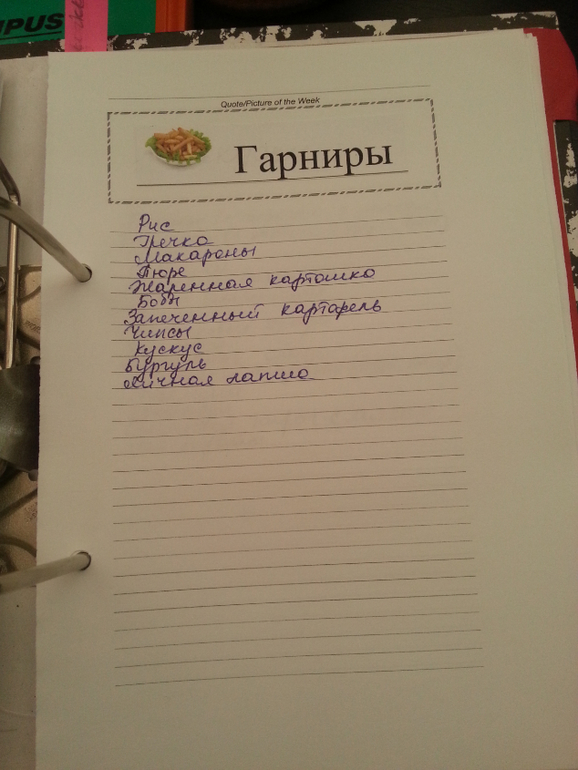 MPUS
Quote/Picture of the Week
Гарниры
Рис
Гречка
Макароны
Пюре
Жаренная картошка
Бобы
Запеченный картарель
Чипсы
Кускус
Бургуль
Яичная лапша